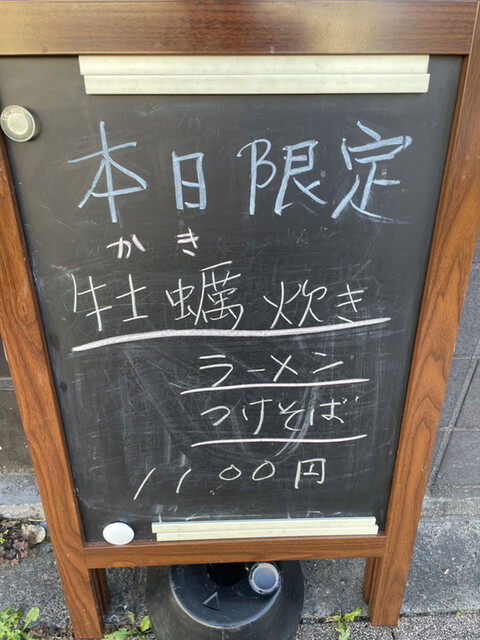 本日限定
かき
牡蠣炊き
ラーメン
つけそば
1100円